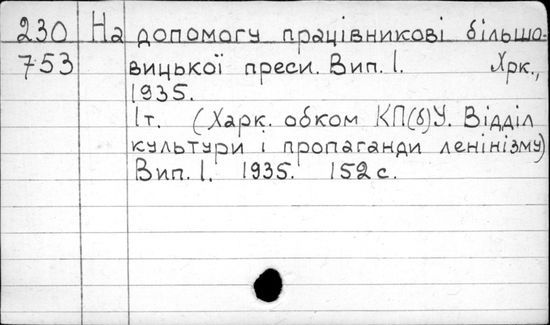 230 На допомогу працівникові більшо-
753 вицької преси. Вип. 1. Хрк.,
1935.
1т. (Харк. обком КП(б)У. Відділ
культури і пропаганди ленінізму)
Вип. 1. 1935. 152 с.